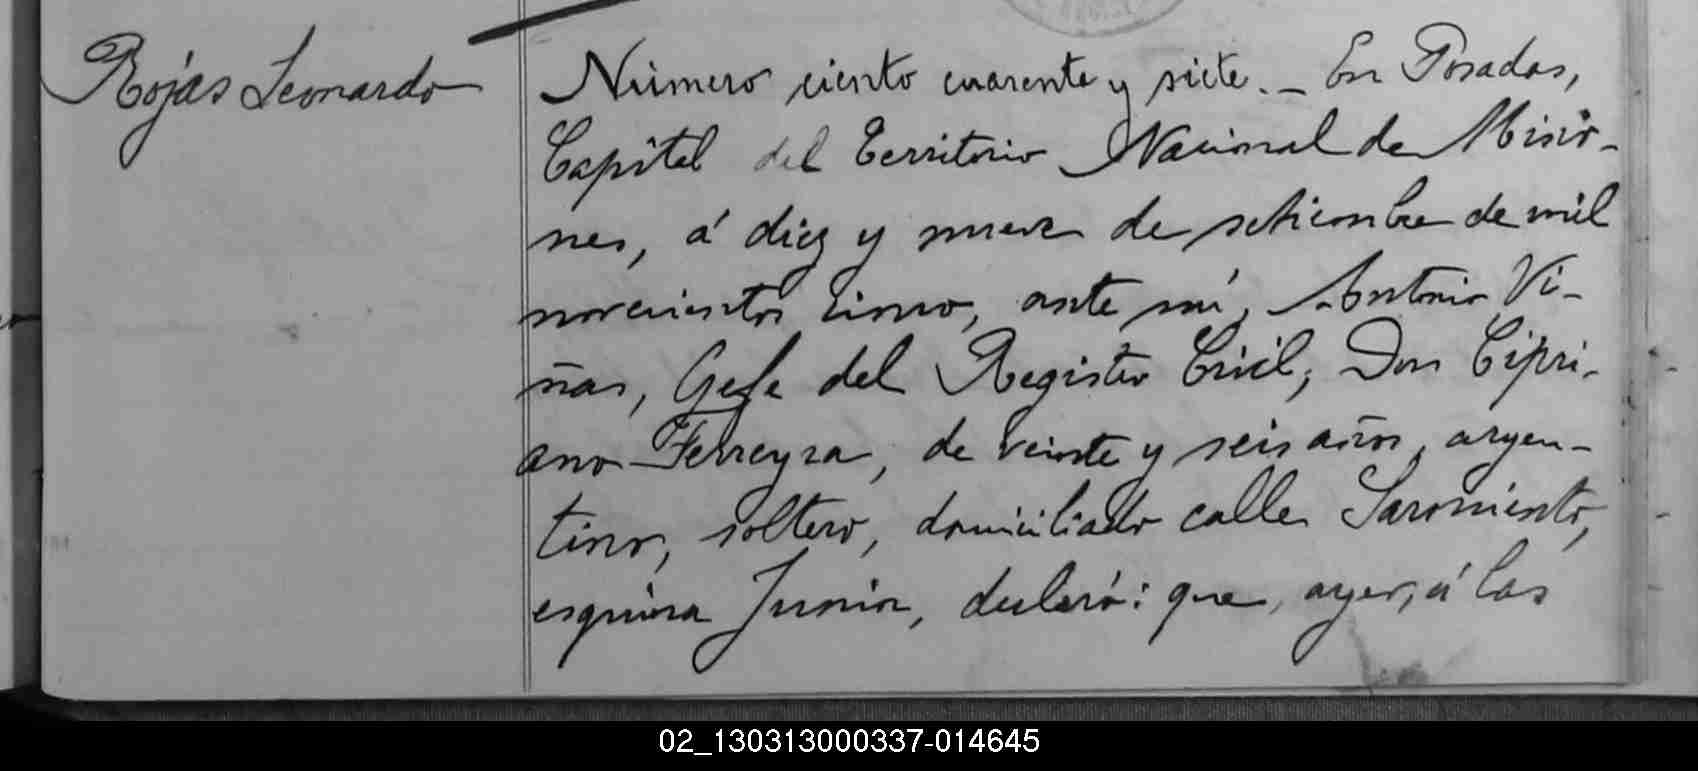 Rojas Leonardo
Número ciento cuarenta y siete. _ En Posadas,
Capital del Territorio Nacional de Misio-
nes, á diez y nueve de setiembre de mil
novecientos cinco, ante mí, Antonio Vi-
ñas, Gefe del Registro Civil, Don Cipri-
ano Ferreyra, de veinte y seis años, argen-
tino, soltero, domiciliado calle Sarmiento,
esquina Junin, declaró: que, ayer, á las
02_130313000337-014645